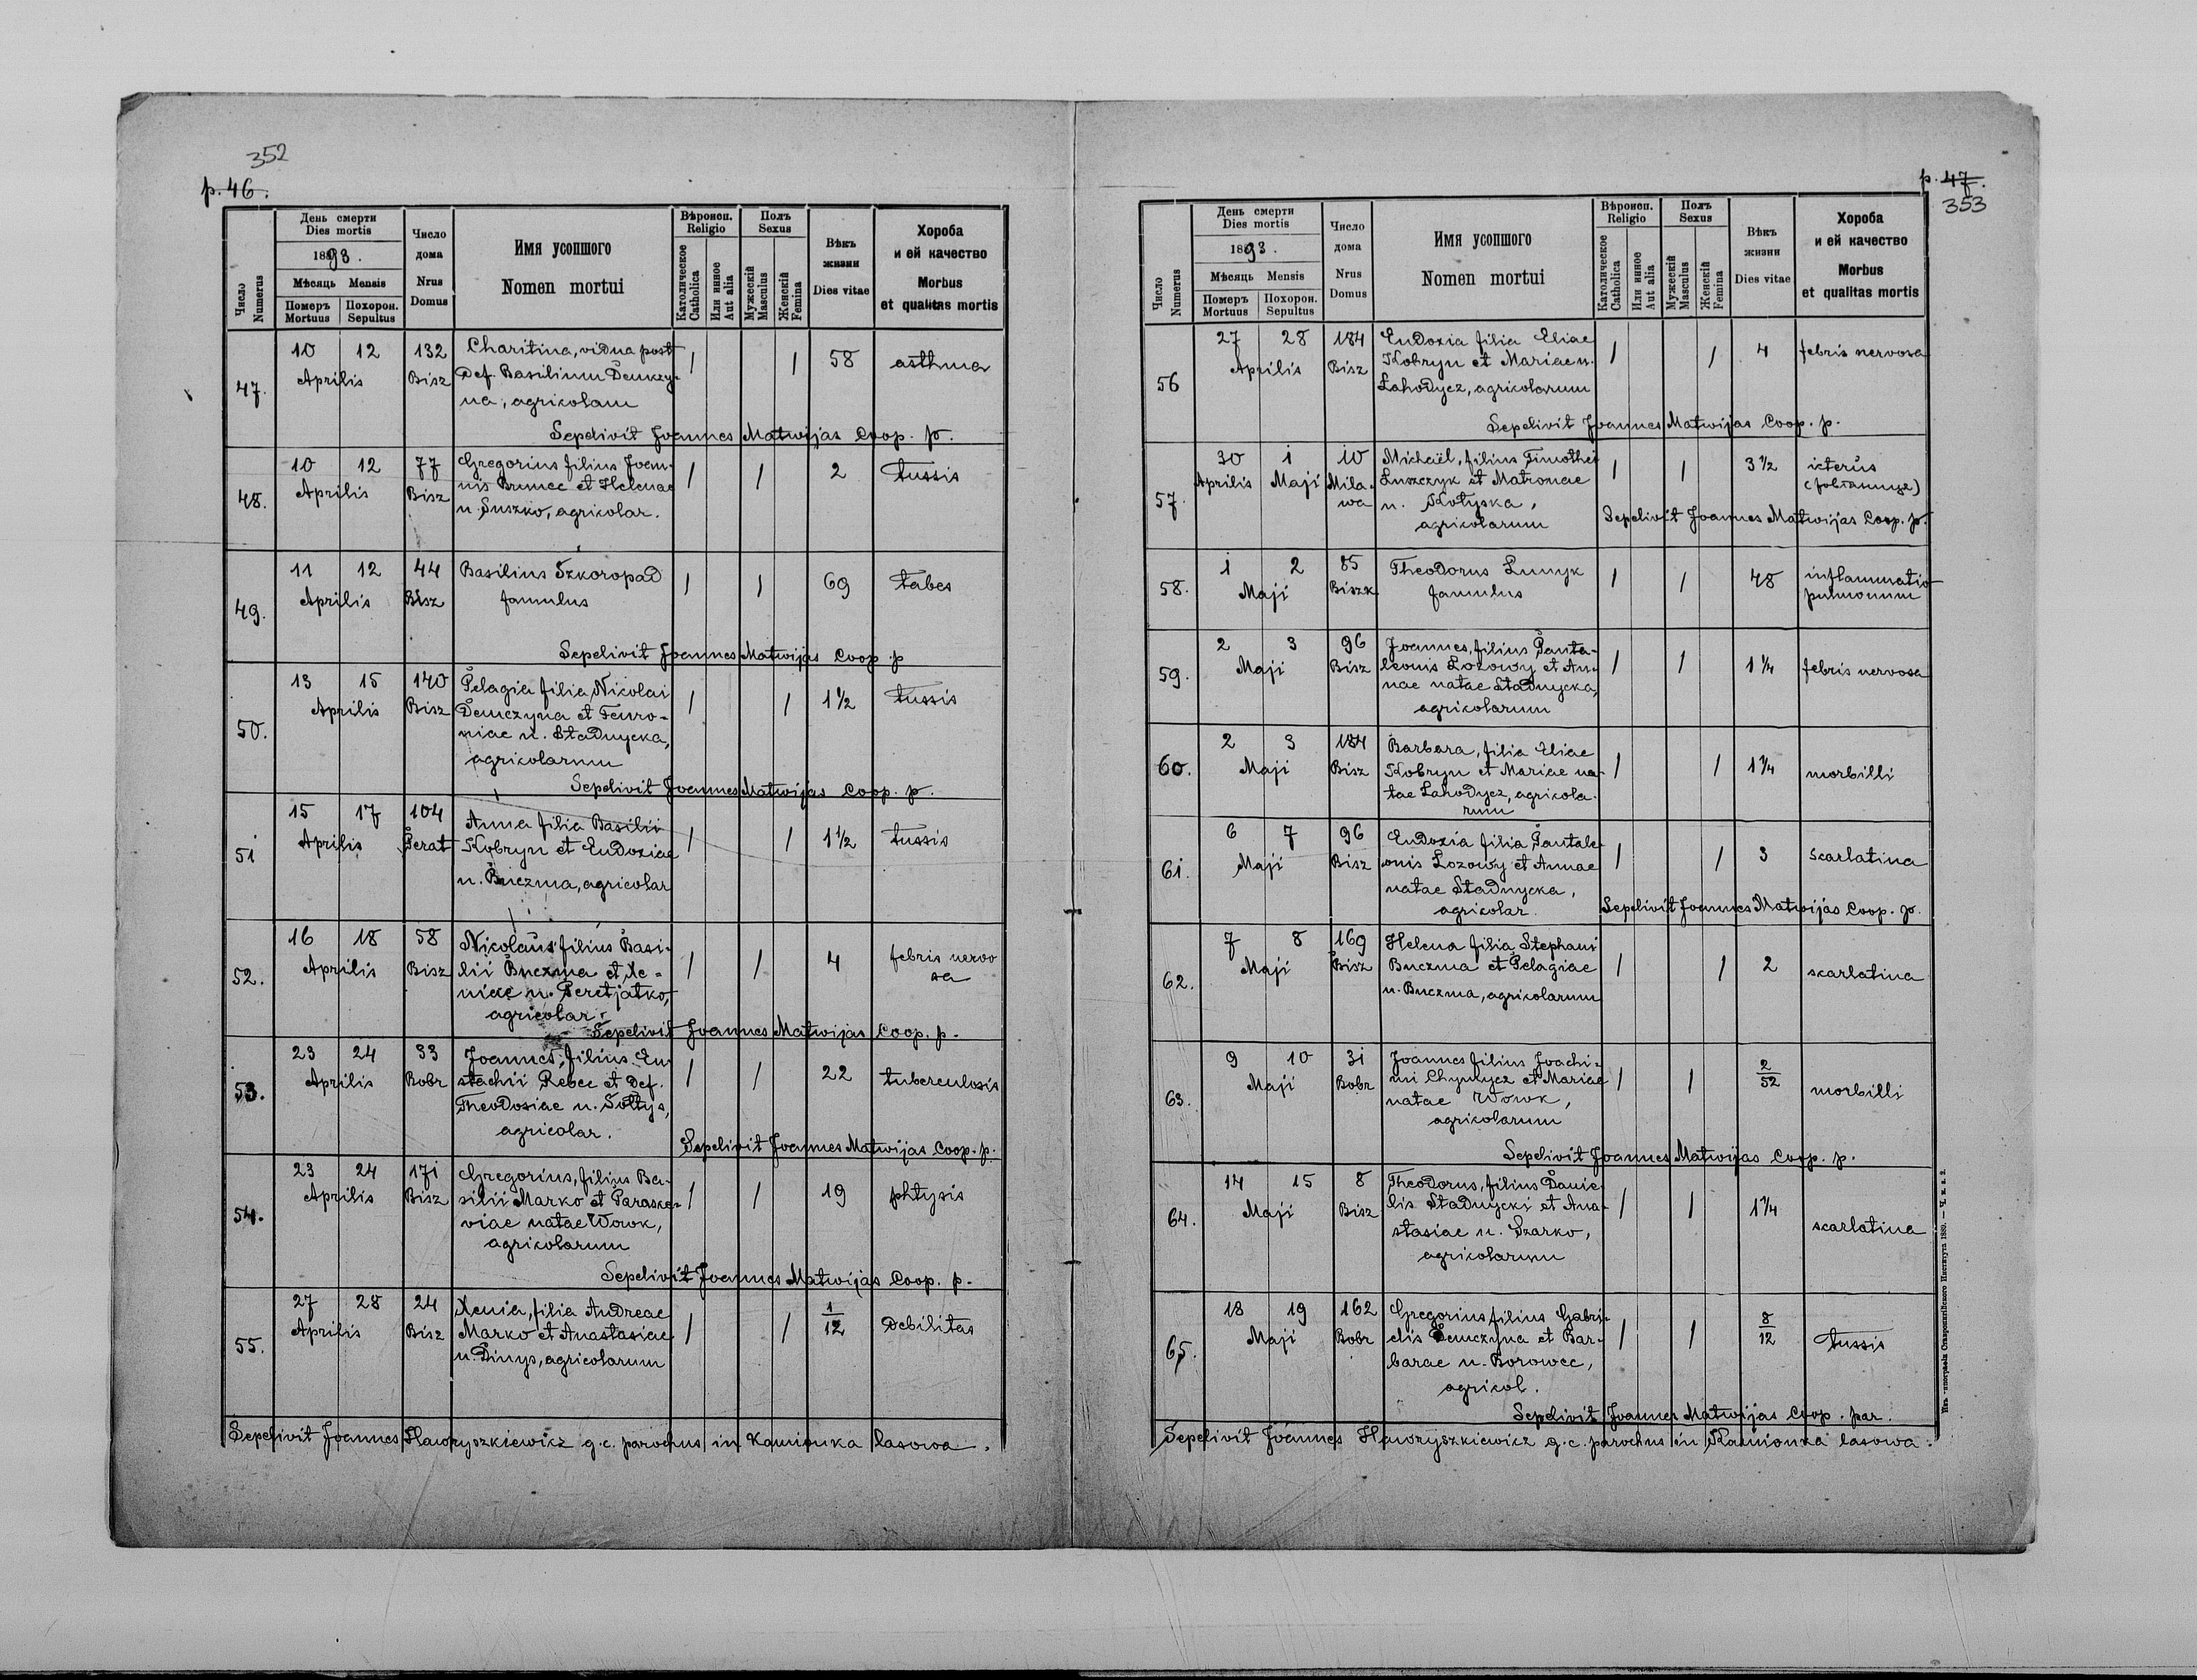 352
p. 46.
Число Numerus
День смерти
Dies mortis
1893.
Мѣсяць Mensis
Померъ Mortuus
Похорон. Sepultus
Число дома
Nrus Domus
Имя усопшого
Nomen mortui
Вѣроисп.
Religio
Католическое Catholica
Или инное Aut alia
Полъ
Sexus
Мужескій Masculus
Женскій Femina
Вѣкъ жизни
Dies vitae
Хороба
и ей качество
Morbus
et qualitas mortis
47. 10 12 132 Charitina, vidua post / / 58 asthma
Aprilis Bisz Def. Basilium Demczy-
na, agricolam
Sepelivit Joannes Matwijas Coop. p.
48. 10 12 77 Gregorius filius Joan- / / 2 tussis
Aprilis Bisz nis Brunec et Helenae
n. Suszko, agricolar.
49. 11 12 44 Basilius Szkoropad / / 69 tabes
Aprilis Bisz famulus
Sepelivit Joannes Matwijas Coop. p
50. 13 15 140 Pelagia filia Nicolai / / 1½ tussis
Aprilis Bisz Demczyna et Fenro-
niae n. Stadnycka,
agricolarum
Sepelivit Joannes Matwijas Coop. p.
51 15 17 104 Anna filia Basilii / / 1½ tussis
Aprilis Perat Kobryn et Eudoxiae
n. Buczma, agricolar
52. 16 18 58 Nicolaus filius Basi- / / 4 febris nervo
Aprilis Bisz lii Buczma et Xe- sa
niae n. Peretjatko,
agricolar.
Sepelivit Joannes Matwijas Coop. p.
53. 23 24 33 Joannes, filius Eu- / / 22 tuberculosis
Aprilis Bobr stachii Rebec et def.
Theodosiae n. Soltys,
agricolar.
Sepelivit Joannes Matwijas Coop. p.
54. 23 24 171 Gregorius, filius Ba- / / 19 phtysis
Aprilis Bisz silii Marko et Paraske-
viae natae Wowk,
agricolarum
Sepelivit Joannes Matwijas Coop. p.
55. 27 28 24 Xenia, filia Andreae / / 1/12 debilitas
Aprilis Bisz Marko et Anastasiae
n. Dinys, agricolarum
Sepelivit Joannes Hawryszkiewicz g.c. parochus in Kamionka lasowa.
p. 47.
353
Число Numerus
День смерти
Dies mortis
1893.
Мѣсяць Mensis
Померъ Mortuus
Похорон. Sepultus
Число дома
Nrus Domus
Имя усопшого
Nomen mortui
Вѣроисп.
Religio
Католическое Catholica
Или инное Aut alia
Полъ
Sexus
Мужескій Masculus
Женскій Femina
Вѣкъ жизни
Dies vitae
Хороба
и ей качество
Morbus
et qualitas mortis
56 27 28 184 Eudoxia filia Eliae / / 4 febris nervosa
Aprilis Bisz Kobryn et Mariae n.
Lahodycz, agricolarum
Sepelivit Joannes Matwijas Coop. p.
57. 30 1 10 Michaël, filius Timothei / / 3½ icterus
Aprilis Maji Mila- Luszczyk et Matronae
wa n. Kotyska,
agricolarum
Sepelivit Joannes Matwijas Coop. p.
58. 1 2 85 Theodorus Lunyk / / 48 inflammatio
Maji Biszk famulus pulmonum
59. 2 3 96 Joannes, filius Panta- / / 1¼ febris nervosa
Maji Bisz leonis Lozowy et An-
nae natae Stadnycka,
agricolarum
60. 2 3 184 Barbara, filia Eliae / / 1¼ morbilli
Maji Bisz Kobryn et Mariae na-
tae Lahodycz, agricola-
rum
61. 6 7 96 Eudoxia filia Pantale- / / 3 scarlatina
Maji Bisz onis Lozowy et Annae
natae Stadnycka,
agricolar.
Sepelivit Joannes Matwijas Coop. p.
62. 7 8 169 Helena filia Stephani / / 2 scarlatina
Maji Bisz Buczma et Pelagiae
n. Buczma, agricolarum
63. 9 10 31 Joannes filius Joachi- / / 2/52 morbilli
Maji Bobr mi Chymycz et Mariae
natae Wowk,
agricolarum
Sepelivit Joannes Matwijas Coop. p.
64. 14 15 8 Theodorus, filius Danie- / / 1¼ scarlatina
Maji Bisz lis Stadnycki et Ana-
stasiae n. Szarko,
agricolarum
65. 18 19 162 Gregorius filius Gabri- / / 8/12 tussis
Maji Bobr elis Demczyna et Bar-
barae n. Borowec,
agricol.
Sepelivit Joannes Matwijas Coop. par.
Sepelivit Joannes Hawryszkiewicz g.c. parochus in Kamionka lasowa.
Изъ типографіи Ставропигійского Института 1889. — Ч. м. з. 2.